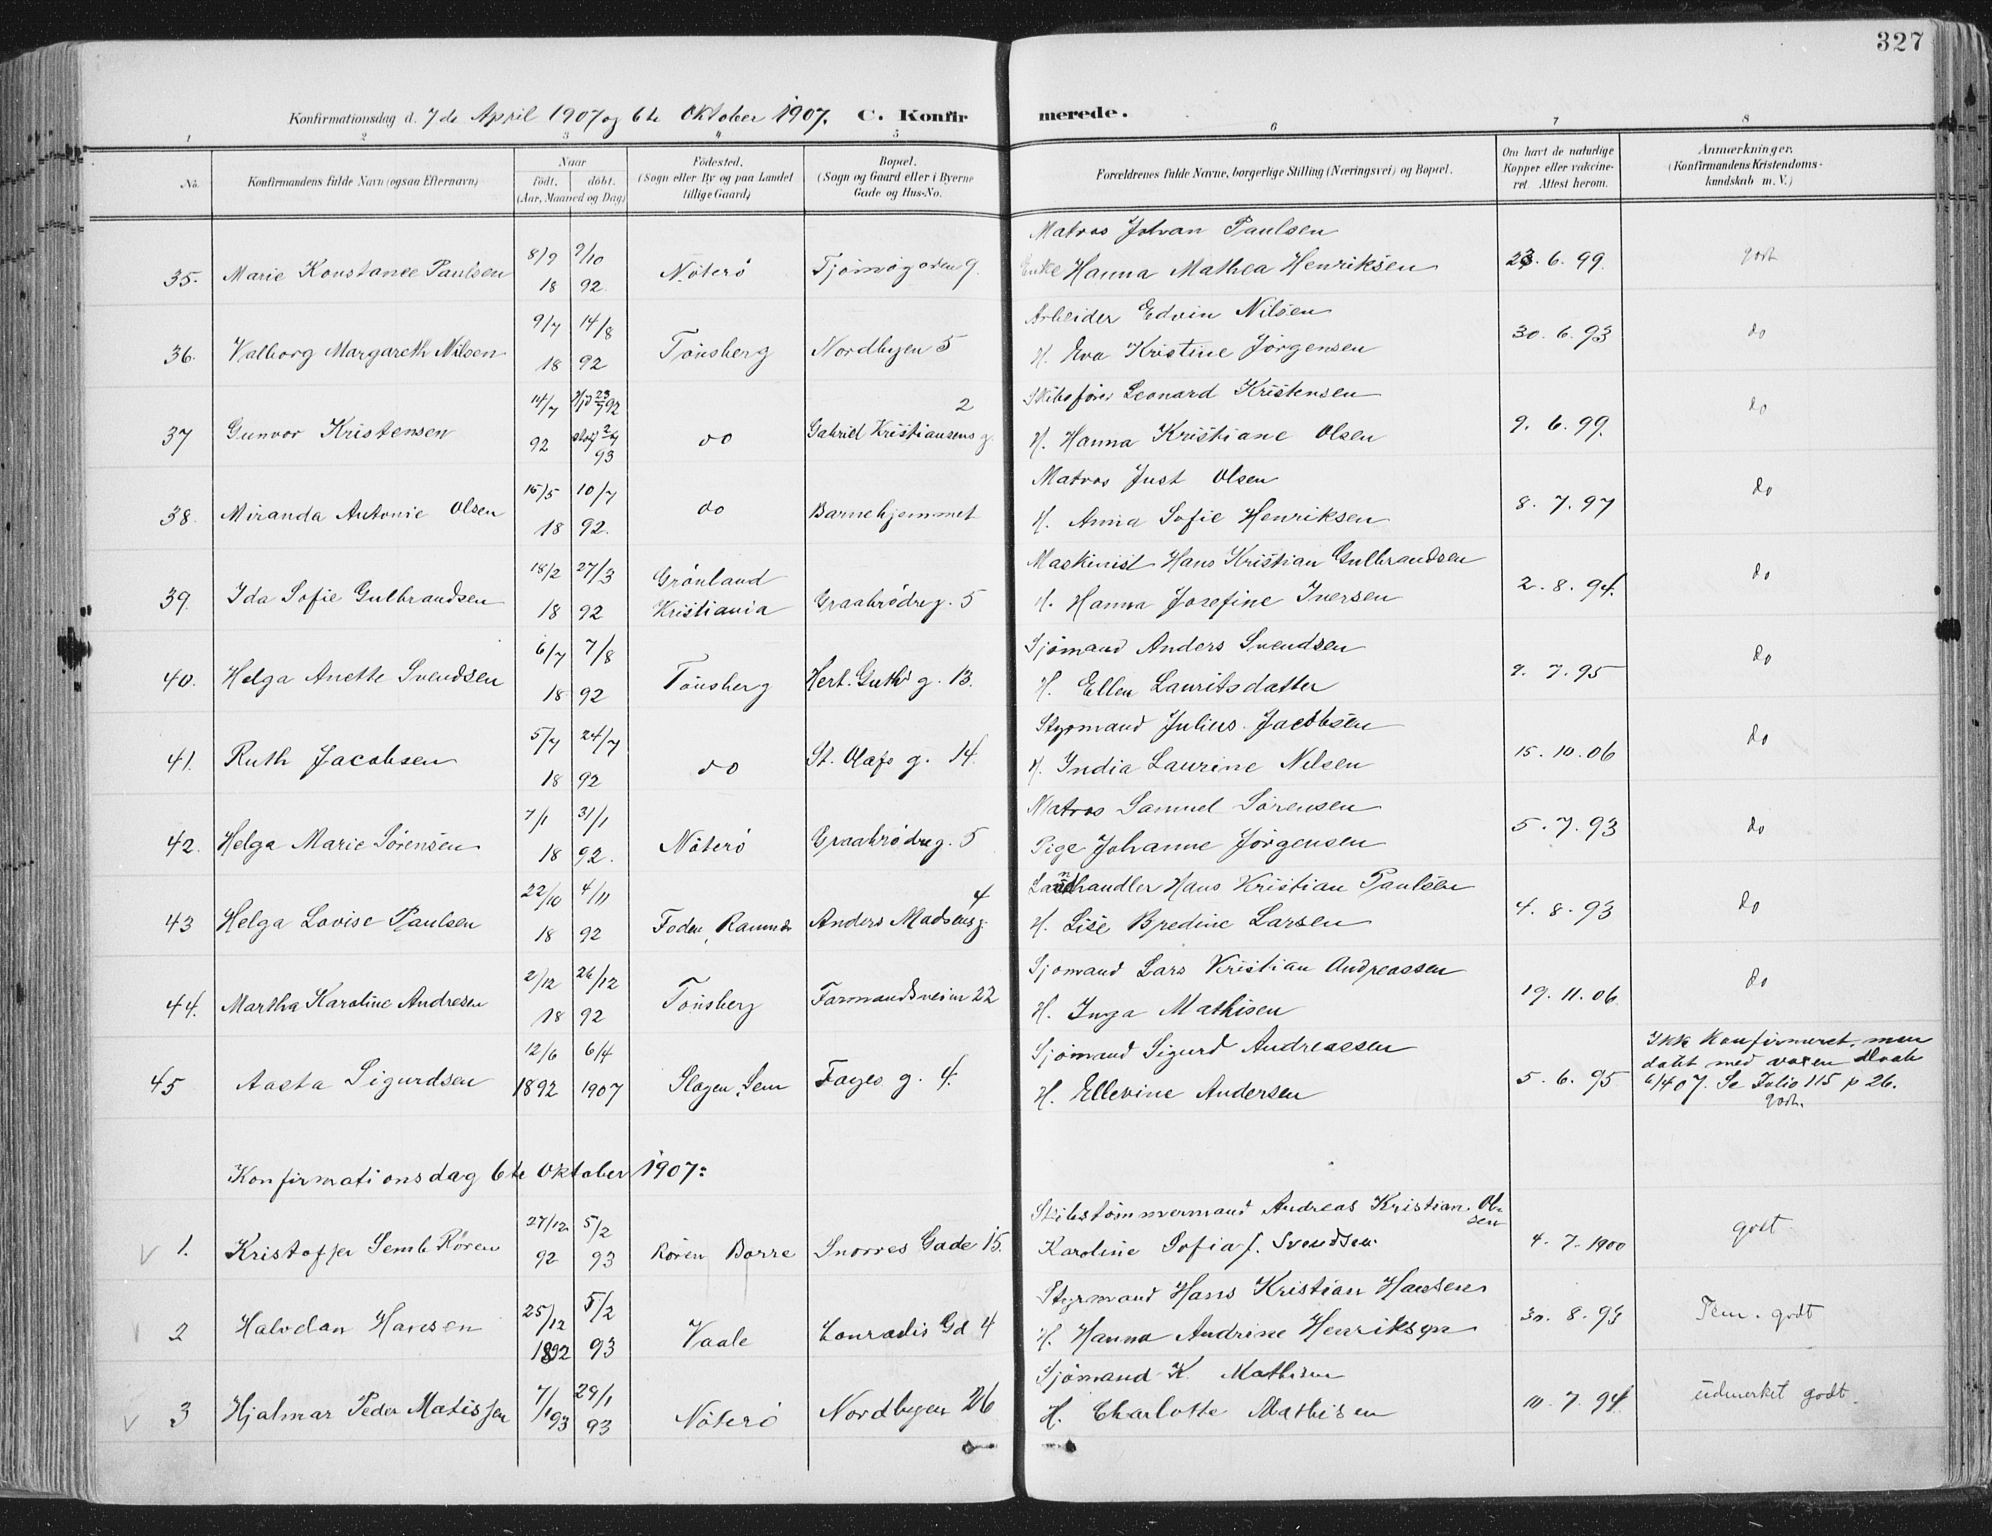 327
Konfirmationsdag d. 7de April 1907 og 6te Oktober 1907. C. Konfirmerede.
1 2 3 4 5 6 7 8
No. Konfirmandens fulde Navn (ogsaa Efternavn) Naar født, døbt. (Aar, Maaned og Dag) Fødested. (Sogn eller By og paa Landet tillige Gaard) Bopæl. (Sogn og Gaard eller i Byerne Gade og Hus-No. Forældrenes fulde Navne, borgerlige Stilling (Næringsvei) og Bopæl. Om havt de naturlige Kopper eller vakcineret Attest herom. Anmærkninger. (Konfirmandens Kristendomskundskab m. V.)
Matros Johan Paulsen
35. Marie Konstance Paulsen 8/9 2/10 18 92. Nøterø Tjømøgaden 9. Enke Hanna Mathea Henriksen 23. 6. 99. godt
Arbeider Edvin Nilsen
36. Valborg Margareth Nilsen 9/7 14/8 18 92 Tønsberg Nordbyen 5 H. Eva Kristine Jørgensen 30. 6. 93 do
Skibsfører Leonard Kristensen
37 Gunvor Kristensen 14/7 92 Hjd 23/7 92 stadf 2/4 93 do Gabriel Kristiansens g. 2 H. Hanna Kristiane Olsen 9. 6. 99. do
Matros Just Olsen
38. Miranda Antonie Olsen 15/5 10/7 18 92. do Barnehjemmet H. Anna Sofie Henriksen 8. 7. 97 do
Maskinist Hans Kristian Gulbrandsen
39. Ida Sofie Gulbrandsen 18/2 27/3 18 92 Grønland Kristiania Graabrødreg. 5 H. Hanna Josefine Iversen 2. 8. 94. do
Sjømand Anders Svendsen
40. Helga Anette Svendsen 6/7 7/8 18 92 Tønsberg Hert. Guth. g. 13. H. Ellen Lauritsdatter 9. 7. 95 do
Styrmand Julius Jacobsen
41. Ruth Jacobsen 5/7 24/7 18 92 do St. Olafs g. 14. H. India Laurine Nilsen 15. 10. 06 do
Matros Samuel Sørensen
42. Helga Marie Sørensen 7/1 31/1 18 92. Nøterø Graabrødreg. 5 Pige Johanne Jørgensen 5. 7. 93 do
Landhandler Hans Kristian Paulsen
43 Helga Lovise Paulsen 22/10 4/11 18 92 Foden, Ramnes Anders Madsensg. 4 H. Lise Bredine Larsen 4. 8. 93 do
Sjømand Lars Kristian Andreassen
44. Martha Karoline Andresen 2/12 26/12 18 92 Tønsberg Farmandsveien 22 H. Inga Mathisen 19. 11. 06 do
Sjømand Sigurd Andreassen
45 Aasta Sigurdsen 12/6 1892 6/4 1907 Slagen, Sem Fayes g. 4. H. Ellevine Andersen 5. 6. 95 Ikke Konfirmeret, men døbt med voxen Daab 6/4 07. Se Folio 115 p 26. godt.
Konfirmationsdag 6te Oktober 1907:
Skibstømmermand Andreas Kristian Olsen
1. Kristoffer Semb Røren 27/12 92 5/2 93 Røren Borre Snorres Gade 15. Karoline Sofia f. Svendsen 4. 7. 1900 godt
Styrmand Hans Kristian Hansen
2 Halvdan Hansen 25/12 1892 5/2 93 Vaale Conradis Gd 4 H. Hanna Andrine Henriksen 30. 8. 93 Tem. godt
Sjømand K. Mathisen
3 Hjalmar Peder Matissen 7/1 93 29/1 93 Nøterø Nordbyen 26 H. Charlotte Mathisen 10. 7. 94 udmerket godt.